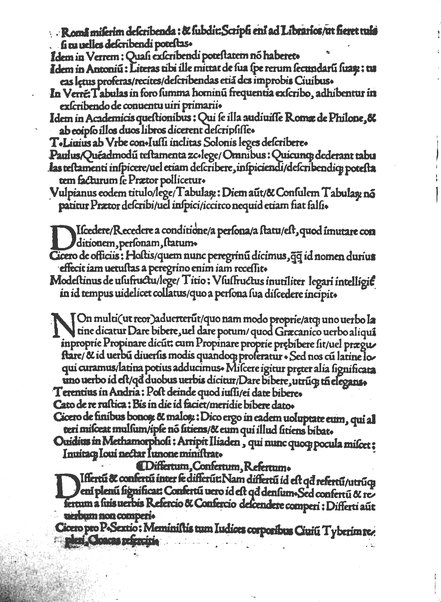 Romā miserim describenda: & subdit: Scripsi eni ad Librarios/ut fieret tuis
si tu uelles describendi potestas⹎
Idem in Verrem: Quasi exscribendi potestatem nō haberet⹎
Idem in Antoniū: Literas tibi ille mittat de sua spe rerum secundarū suaꝝ: tu
eas lętus proferas/describendas etiā des improbis Ciuibus⹎
In Verrē: Tabulas in foro summa hominū frequentia exscribo, adhibentur in
exscribendo de conuentu uiri primarii⹎
Idem in Academicis quęstionibus: Qui se illa audiuisse Romæ de Philone, &
ab eoipso illos duos libros dicerent descripsisse⹎
T⹎ Liuius ab Vrbe con⹎ Iussi inclitas Solonis leges describere⹎
Paulus/Quēadmodū testamenta &c lege/Omnibus: Quicunqȝ dederant tabu
las testamenti inspicere/uel etiam describere, inspiciendi/describendiqȝ potesta
tem facturum se Prætor pollicetur⹎
Vulpianus eodem titulo/lege/Tabulaȝ: Diem aūt/& Consulem Tabulaȝ nō
patitur Prætor describi/uel inspici/iccirco nequid etiam fiat falsi⹎
DIscedere/Recedere a conditione/a persona/a statu/est, quod imutare con
ditionem, personam, statum⹎
Cicero de officiis: Hostis/quem nunc peregrinū dicimus, ꝙꝗ id nomen durius
effecit iam uetustas a peregrino enim iam recessit⹎
Modestinus de usufructu/lege/ Titio: Vsufructus inutiliter legari intelligiť
in id tempus uidelicet collatus/quo a persona sua discedere incipit⹎
NOn multi (ut reor) aduerterūt/quo nam modo proprie/atqȝ uno uerbo la
tine dicatur Dare bibere, uel dare potum/ quod Græcanico uerbo aliqui
inproprie Propinare dicūt: cum Propinare proprie prębibere sit/uel prægu
stare/& id uerbū diuersis modis quandoqȝ proferatur⹎ Sed nos cū latine lo
qui curamus/latina potius adducimus⹎ Miscere igitur pręter alia significata
uno uerbo id est/qď duobus uerbis dicitur/Dare bibere, utrūqȝ tñ elegans⹎
Terentius in Andria: Post deinde quod iussi/ei date bibere⹎
Cato de re rustica: Bis in die id faciet/meridie bibere dato⹎
Cicero de finibus bonoꝝ & maloꝝ: Dico ergo in eadem uoluptate eum, qui al
teri misceat mulsum/ipse nō sitiens/& eum qui illud sitiens bibat⹎
Ouidius in Methamorphosi: Arripit Iliaden, qui nunc quoqȝ pocula miscet:
Inuitaqȝ Ioui nectar Iunone ministrat⹎
¶Differtum, Confertum, Refertum⹎
DIffertū & confertū inter se differūt: Nam differtū id est qď refertū/utrūqȝ
eni plenū significat: Confertū uero id est qď densum⹎ Sed confertū & re⸗
fertum a suis uerbis Refercio & Confercio descendere comperi: Differti aūt
uerbum non comperi⹎
Cicero pro P⹎ Sextio: Meministis tum Iudices corporibus Ciuiū Tyberim re⸗
pleri, Cloacas refercisci⹎